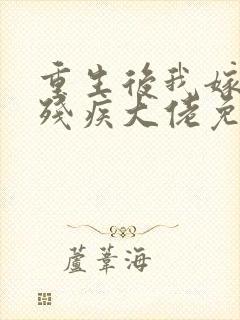 重生後我嫁
殘疾大佬免
蘆葦海